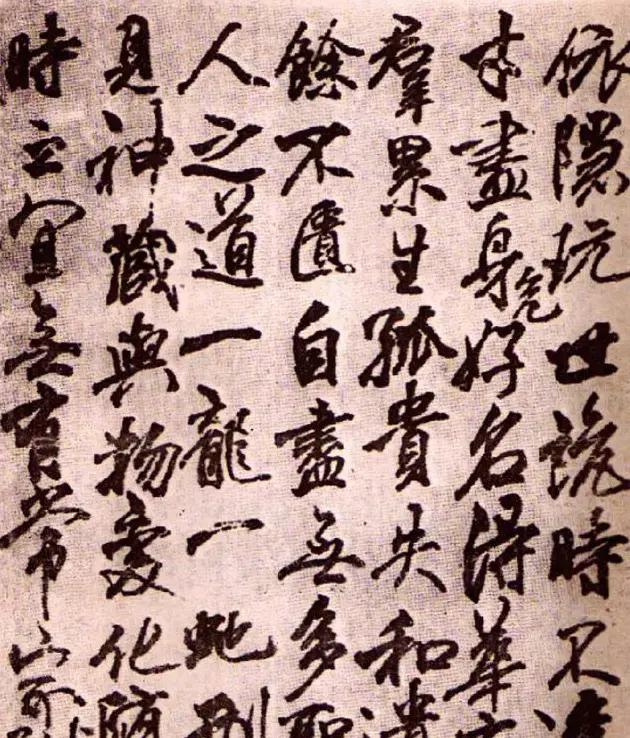 依隱玩世詭時不
才盡身危好名得華
羣累生孤貴失和遺
餘不匱自盡無多聖
人之道一龍一蛇形
見神藏與物變化隨
時之宜無有常